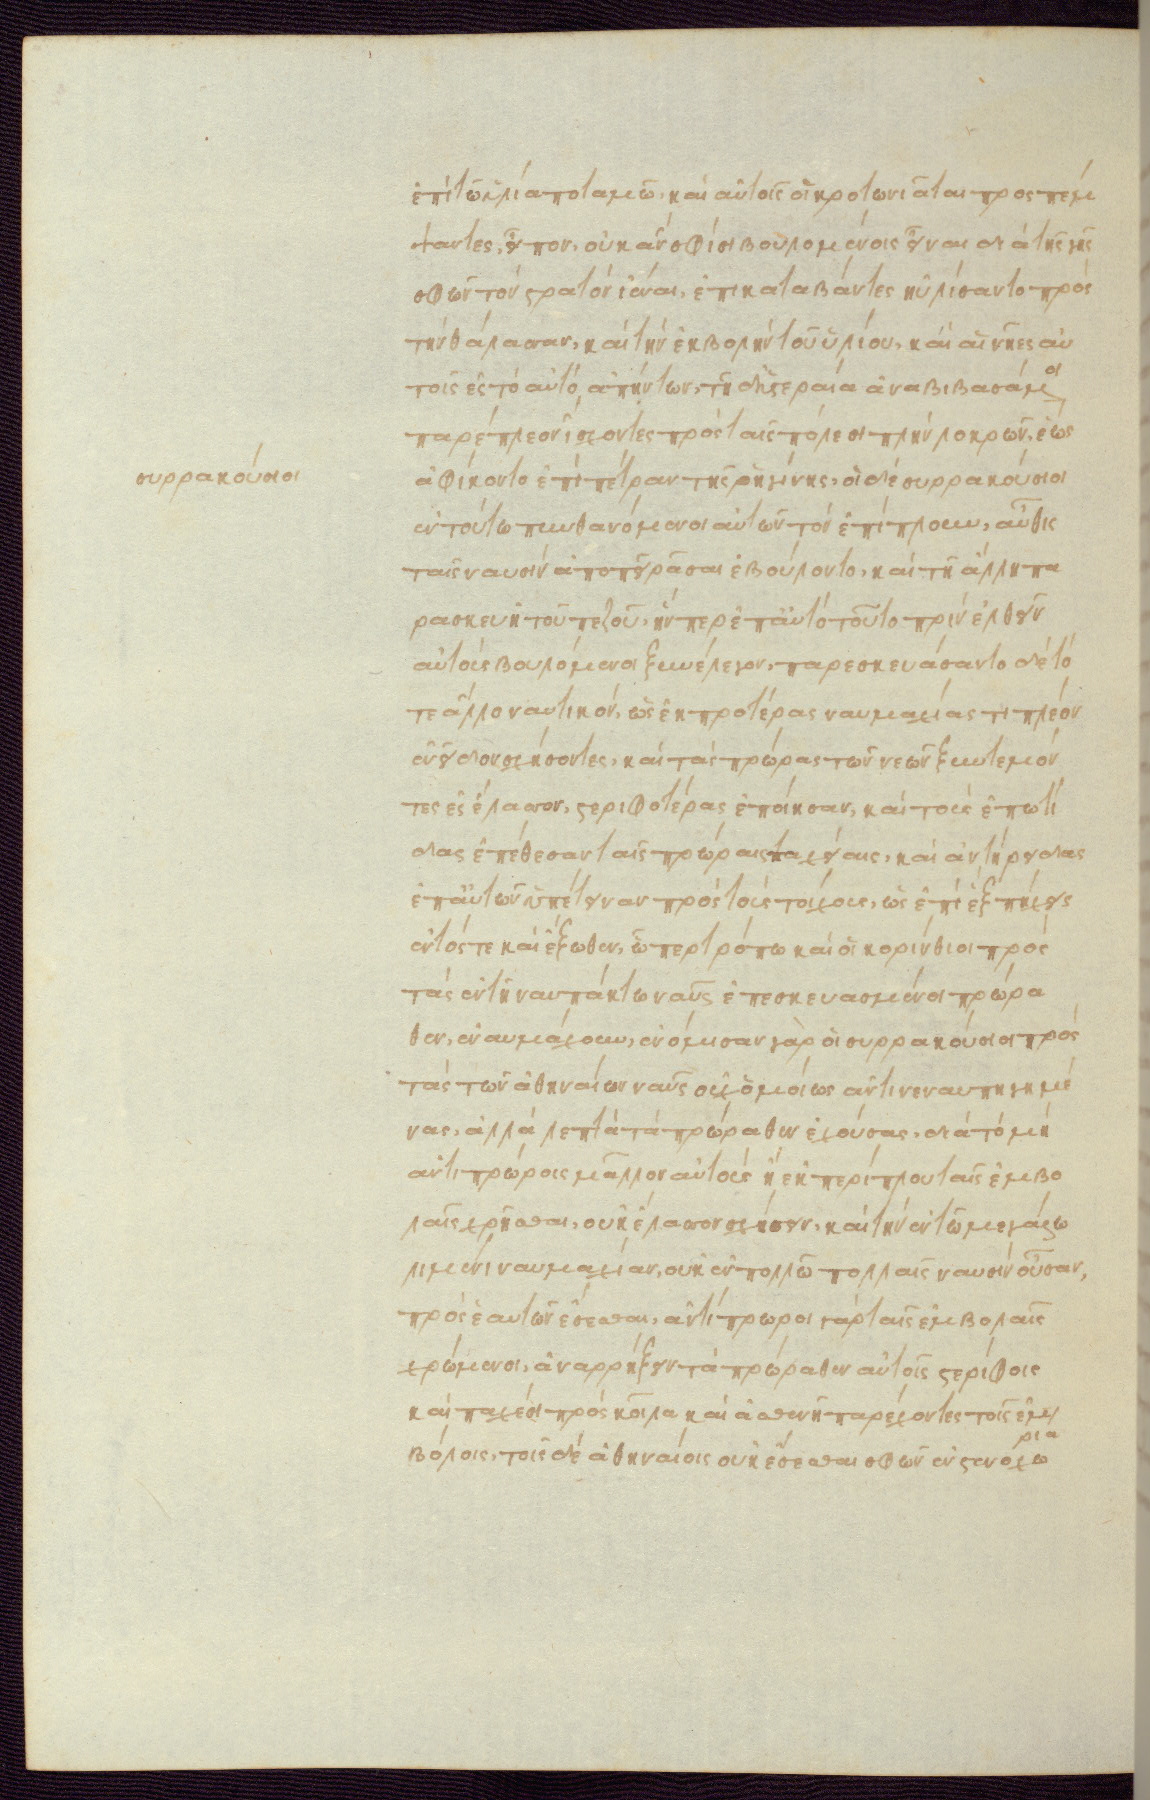 ἐπὶ τῶ ὑλία ποταμῶ, καὶ αὐτοῖς οἱ κροτωνιᾶται προσπέμ
ψαντες, εἶπον, οὐκ ἄν σφίσι βουλομένοις εἶναι διὰ τῆς γῆς
σφῶν τὸν στρατὸν ἰέναι, ἐπικαταβάντες ηὐλίσαντο πρὸς
τὴν θάλασσαν, καὶ τὴν ἐκβολὴν τοῦ ὑλίου, καὶ αἱ νῆες αὐ
τοῖς ἐς τὸ αὐτὸ ἀπήντων, τῆ δ' ὑστεραία ἀναβιβασάμενοι
παρέπλεον ἴσχοντες πρὸς ταῖς πόλεσι πλὴν λοκρῶν, ἕως
συρρακούσιοι
ἀφίκοντο ἐπὶ πέτραν τῆς ῥηγίνης, οἱ δὲ συρρακούσιοι
ἐν τούτω πυνθανόμενοι αὐτῶν τὸν ἐπίπλουν, αὖθις
ταῖς ναυσὶν ἀποπειρᾶσαι ἐβούλοντο, καὶ τῆ ἄλλη πα
ρασκευῆ τοῦ πεζοῦ, ἥνπερ ἐπ' αὐτὸ τοῦτο πρὶν ἐλθεῖν
αὐτοὺς βουλόμενοι ξυνέλεγον, παρεσκευάσαντο δὲ τό
τε ἄλλο ναυτικόν, ὡς ἐκ προτέρας ναυμαχίας τι πλέον
ἐνεῖδον σχήσοντες, καὶ τὰς πρώρας τῶν νεῶν ξυντεμόν
τες ἐς ἔλασσον, στεριφοτέρας ἐποίησαν, καὶ τὰς ἐπωτί
δας ἐπέθεσαν ταῖς πρώραις παχείαις, καὶ ἀντήρειδας
ἐπ' αὐτῶν ὑπέτειναν πρὸς τοὺς τοίχους, ὡς ἐπὶ ἓξ πήχεις
ἐντός τε καὶ ἔξωθεν, ὧπερ τρόπω καὶ οἱ κορίνθιοι πρὸς
τὰς ἐν τῆ ναυπάκτω ναῦς ἐπεσκευασμένοι πρώρα
θεν, ἐναυμάχουν, ἐνόμισαν γὰρ οἱ συρρακούσιοι πρὸς
τὰς τῶν ἀθηναίων ναῦς οὐχ ὁμοίως ἀντινεναυπηγημέ
νας, ἀλλὰ λεπτὰ τὰ πρώραθεν ἐχούσας, διὰ τὸ μὴ
ἀντιπρώροις μᾶλλον αὐτοὺς ἢ ἐκ περίπλου ταῖς ἐμβο
λαῖς χρῆσθαι, οὐκ ἔλασσον σχήσειν, καὶ τὴν ἐν τῶ μεγάλω
λιμένι ναυμαχίαν, οὐκ ἐν πολλῶ πολλαῖς ναυσὶν οὖσαν,
πρὸς ἑαυτῶν ἔσεσθαι, ἀντίπρωροι γὰρ ταῖς ἐμβολαῖς
χρώμενοι, ἀναρρήξειν τὰ πρώραθεν αὐτοῖς στερίφοις
καὶ παχέσι πρὸς κοῖλα καὶ ἀσθενῆ παρέχοντες τοῖς ἐμ
βόλοις, τοῖς δὲ ἀθηναίοις οὐκ ἔσεσθαι σφῶν ἐν στενοχωρία